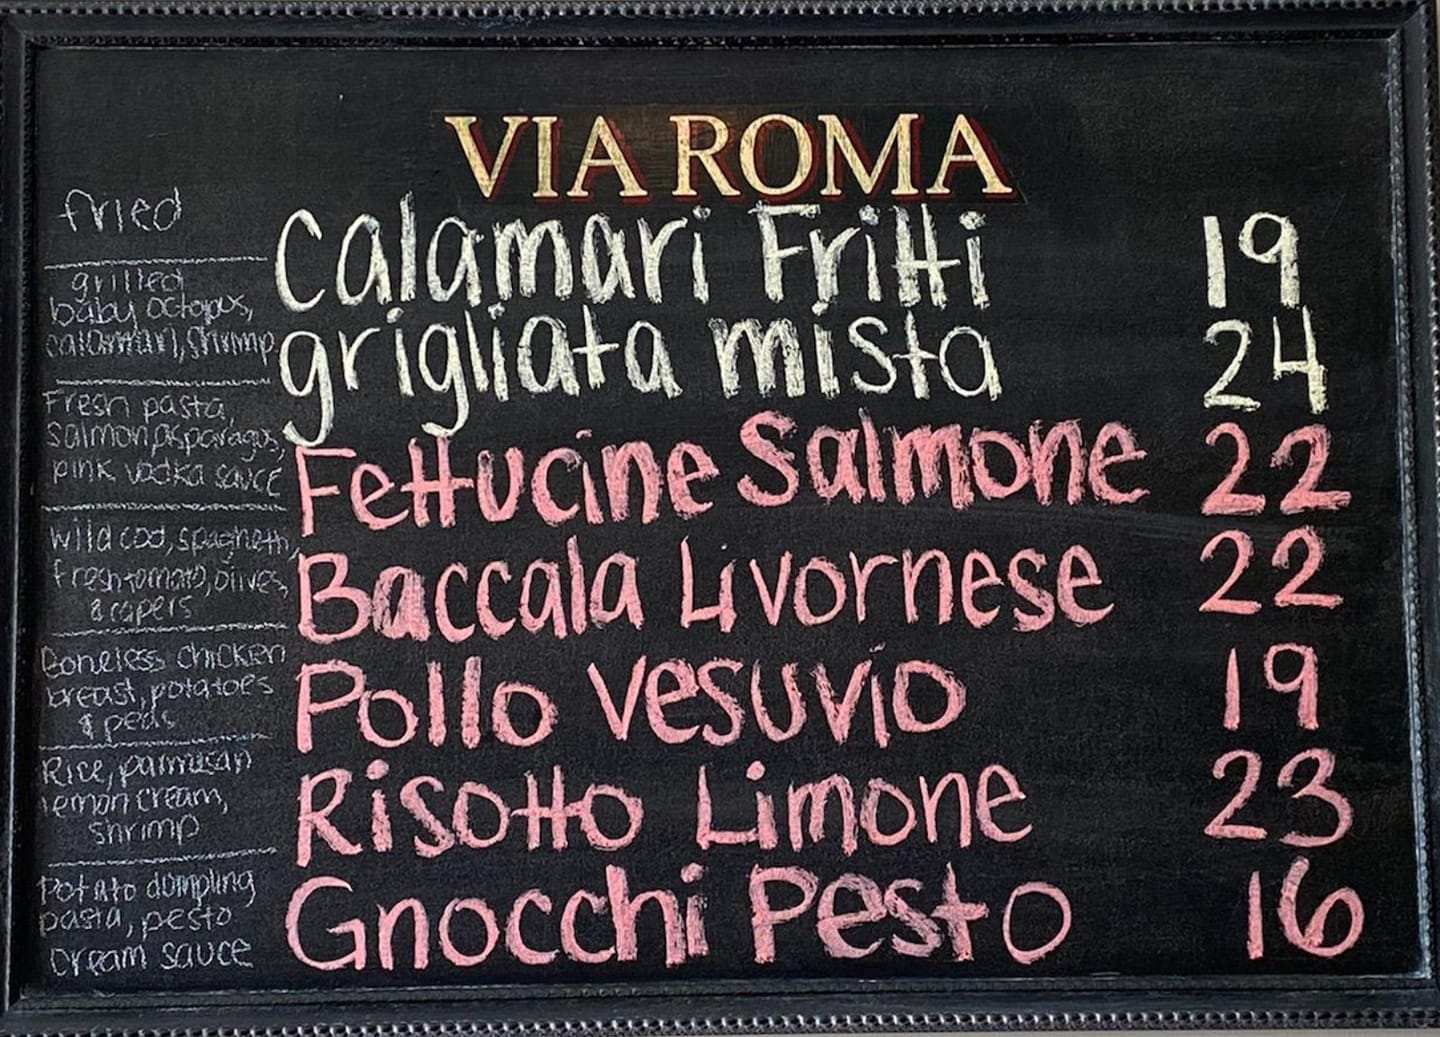 VIA ROMA
fried
Calamari Fritti 19
grilled
baby octopus,
calamari, shrimp
grigliata mista 24
Fresh pasta,
salmon, asparagus,
pink vodka sauce
Fettucine Salmone 22
wild cod, spaghetti,
fresh tomato, olives,
& capers
Baccala Livornese 22
Boneless chicken
breast, potatoes
& peas
Pollo Vesuvio 19
Rice, parmesan
lemon cream,
shrimp
Risotto Limone 23
Potato dumpling
pasta, pesto
cream sauce
Gnocchi Pesto 16